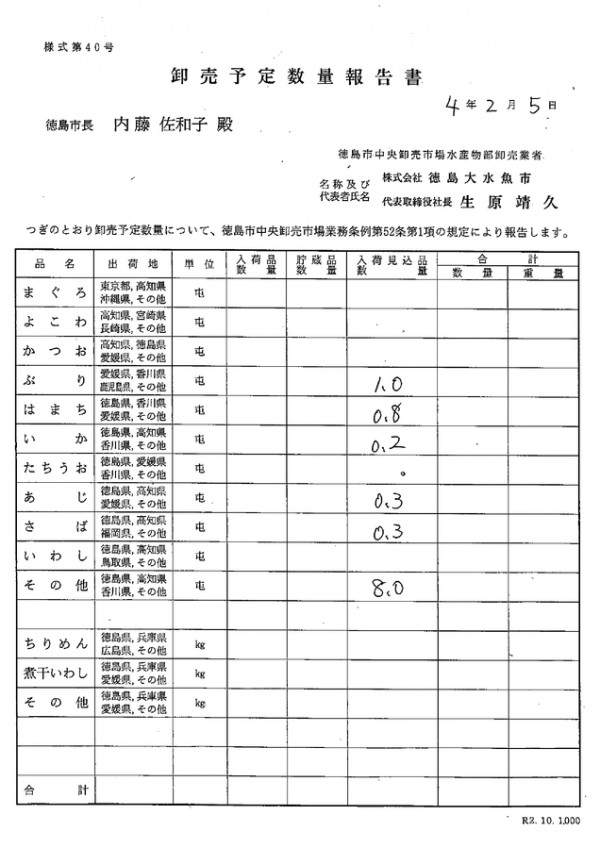 様式第40号
卸売予定数量報告書
4年2月5日
徳島市長 内藤 佐和子 殿
徳島市中央卸売市場水産物部卸売業者
名称及び 株式会社 徳島大水魚市
代表者氏名 代表取締役社長 生原靖久
つぎのとおり卸売予定数量について、徳島市中央卸売市場業務条例第52条第1項の規定により報告します。
品名 出荷地 単位 入荷品数量 貯蔵品数量 入荷見込品数量 合計 数量 重量
まぐろ 東京都, 高知県 沖縄県, その他 屯
よこわ 高知県, 宮崎県 長崎県, その他 屯
かつお 高知県, 徳島県 愛媛県, その他 屯
ぶり 愛媛県, 香川県 鹿児島県, その他 屯 1.0
はまち 徳島県, 香川県 愛媛県, その他 屯 0.8
いか 徳島県, 高知県 香川県, その他 屯 0.2
たちうお 徳島県, 愛媛県 香川県, その他 屯
あじ 徳島県, 高知県 愛媛県, その他 屯 0.3
さば 徳島県, 高知県 福岡県, その他 屯 0.3
いわし 徳島県, 高知県 鳥取県, その他 屯
その他 徳島県, 高知県 香川県, その他 屯 8.0
ちりめん 徳島県, 兵庫県 広島県, その他 kg
煮干いわし 徳島県, 兵庫県 愛媛県, その他 kg
その他 徳島県, 兵庫県 愛媛県, その他 kg
合計
R2. 10. 1,000